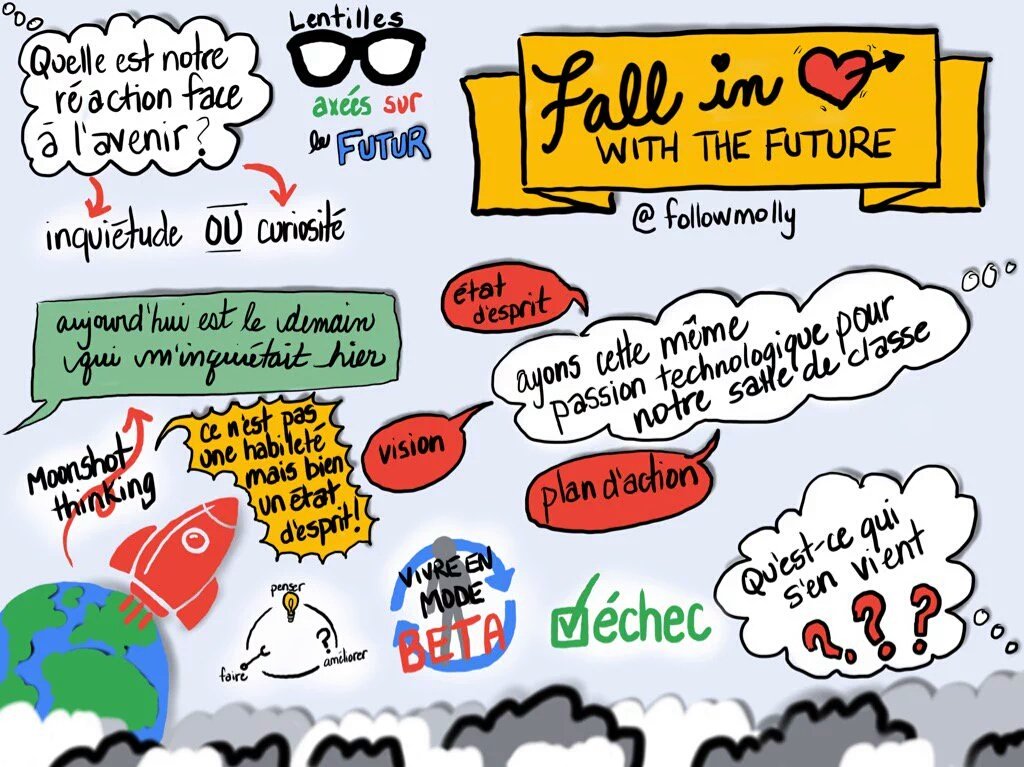 Quelle est notre
réaction face
à l'avenir?
inquiétude OU curiosité
Lentilles
axées sur
le FUTUR
Fall in
WITH THE FUTURE
@followmolly
aujourd'hui est le demain
qui m'inquiétait hier
état
d'esprit
ayons cette même
passion technologique pour
notre salle de classe
vision
plan d'action
Moonshot
thinking
ce n'est pas
une habileté
mais bien
un état
d'esprit!
penser
faire
?
améliorer
VIVRE EN
MODE
BETA
échec
Qu'est-ce qui
s'en vient
???